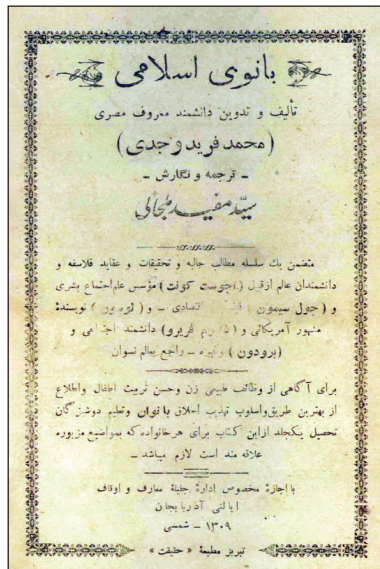 بانوی اسلامی
تألیف و تدوین دانشمند معروف مصری
(محمد فرید وجدی)
- ترجمه و نگارش -
سید مفید
متضمن یك سلسله مطالب جالبه و تحقیقات و عقاید فلاسفه و
دانشمندان عالم ازقبیل (اجوست کونت) مؤسس علم اجتماع بشری
و (جول سیمون) اقتصادی - و نویسندهٔ
مشهور آمریکائی و (فریرو) دانشمند اجتماعی و
(برودون) وغیره - راجع بعالم نسوان
برای آگاهی از وظائف طبیعی زن و حسن تربیت اطفال واطلاع
از بهترین طریق واسلوب تهذیب اخلاق بانوان وتعلیم دوشیزگان
تحصیل یکجلد ازاین کتاب برای هر خانواده که بمواضیع مزبوره
علاقه مند است لازم میباشد -
با اجازهٔ مخصوص ادارهٔ جلیلهٔ معارف و اوقاف
ایالتی آذربایجان
۱۳۰۹ - شمسی
تبریز مطبعهٔ « حقیقت »